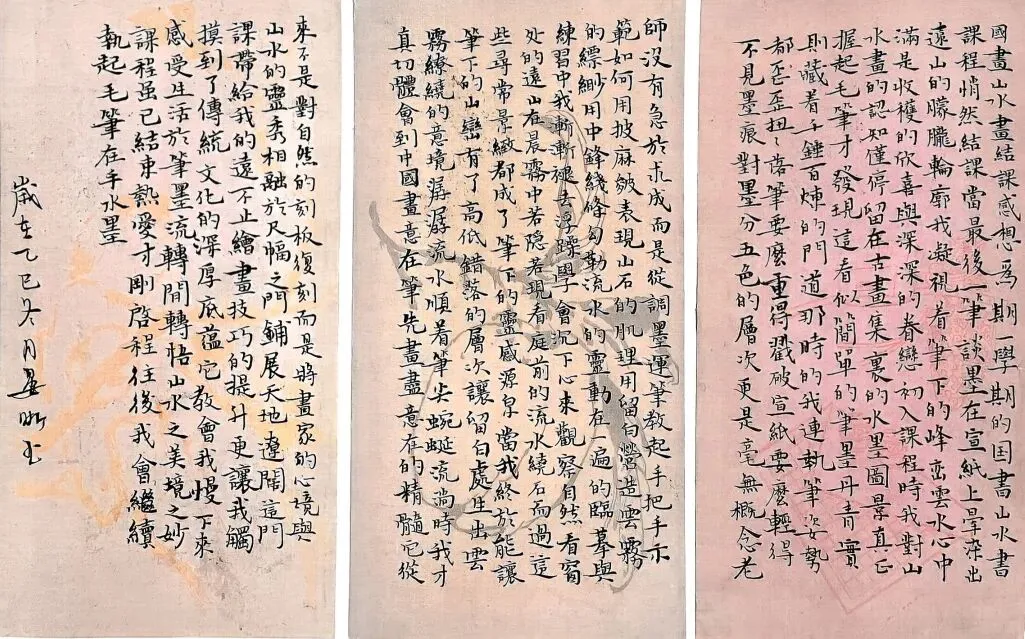 國畫山水畫結課感想爲期一學期的国書山水書
課程悄然結課當最後一筆談墨在宣紙上暈染出
遠山的朦朧輪廓我凝視着筆下的峰巒雲水心中
滿是收穫的欣喜與深深的眷戀初入課程時我對山
水畫的認知僅停留在古畫集裏的水墨圖景真正
握起毛筆才發現這看似簡單的筆墨丹青實
則藏着千錘百煉的門道那時的我連執筆姿勢
都歪歪扭扭落筆要麼重得戳破宣紙要麼輕得
不見墨痕對墨分五色的層次更是毫無概念老
師沒有急於求成而是從調墨運筆教起手把手示
範如何用披麻皴表現山石的肌理用留白營造雲霧
的縹緲用中鋒綫峰勾勒流水的靈動在一遍的臨摹與
練習中我漸漸褪去浮躁學會沉下心來觀察自然看窗
处的遠山在晨霧中若隱若現看庭前的流水繞石而過這
些尋常景緻都成了筆下的靈感源泉當我終於能讓
筆下的山巒有了高低錯落的層次讓留白處生出雲
霧繚繞的意境潺潺流水順着筆尖蜿蜒流淌時我才
真切體會到中國畫意在筆先畫盡意存的精髓它從
來不是對自然的刻板復刻而是將畫家的心境與
山水的靈秀相融於尺幅之門鋪展天地遼闊這門
課帶給我的遠不止繪畫技巧的提升更讓我觸
摸到了傳統文化的深厚底蕴它教會我慢下來
感受生活於筆墨流轉間轉悟山水之美境之妙
課程虽已結束熱愛才剛啓程往後我會繼續
執起毛筆在手水墨
歲在乙巳冬月晏昕玉